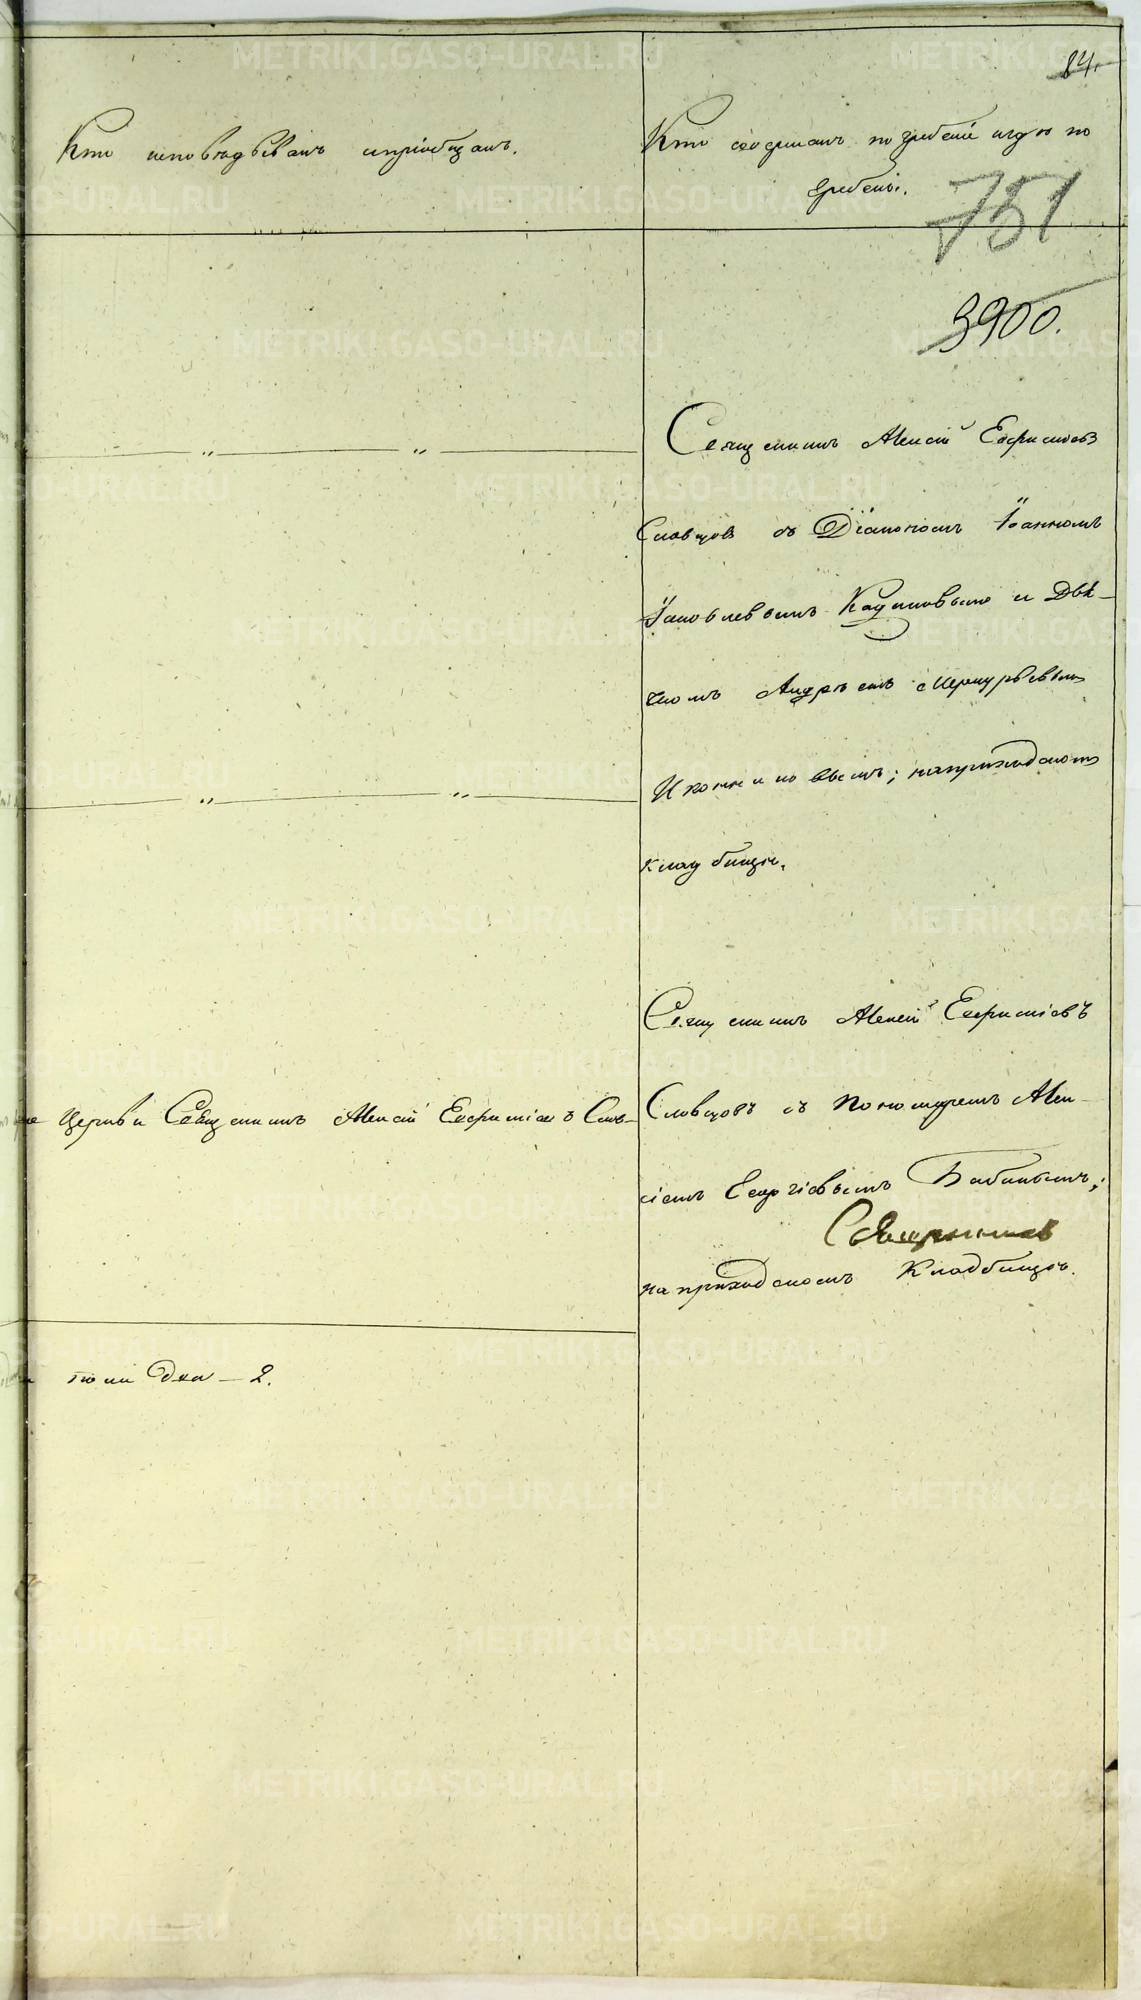 84.
Кто исповѣдывалъ и пріобщалъ.
Кто совершалъ погребеніе и гдѣ по
гребены.
751
3900.
Священникъ Алексій Евфиміевъ
Словцовъ съ Діакономъ Іоанномъ
Іаковлевымъ Кадиковымъ и Дья-
чкомъ Андреемъ Меркурьевымъ
Иконниковымъ; на приходскомъ
кладбищѣ.
Священникъ Алексій Евфиміевъ
Словцовъ съ Пономаремъ Алек-
сіемъ Георгіевымъ Бабинымъ;
на приходскомъ Кладбищѣ.
Церкви Священникъ Алексій Евфиміевъ Слов-
Священникъ
пола два — 2.
METRIKI.GASO-URAL.RU